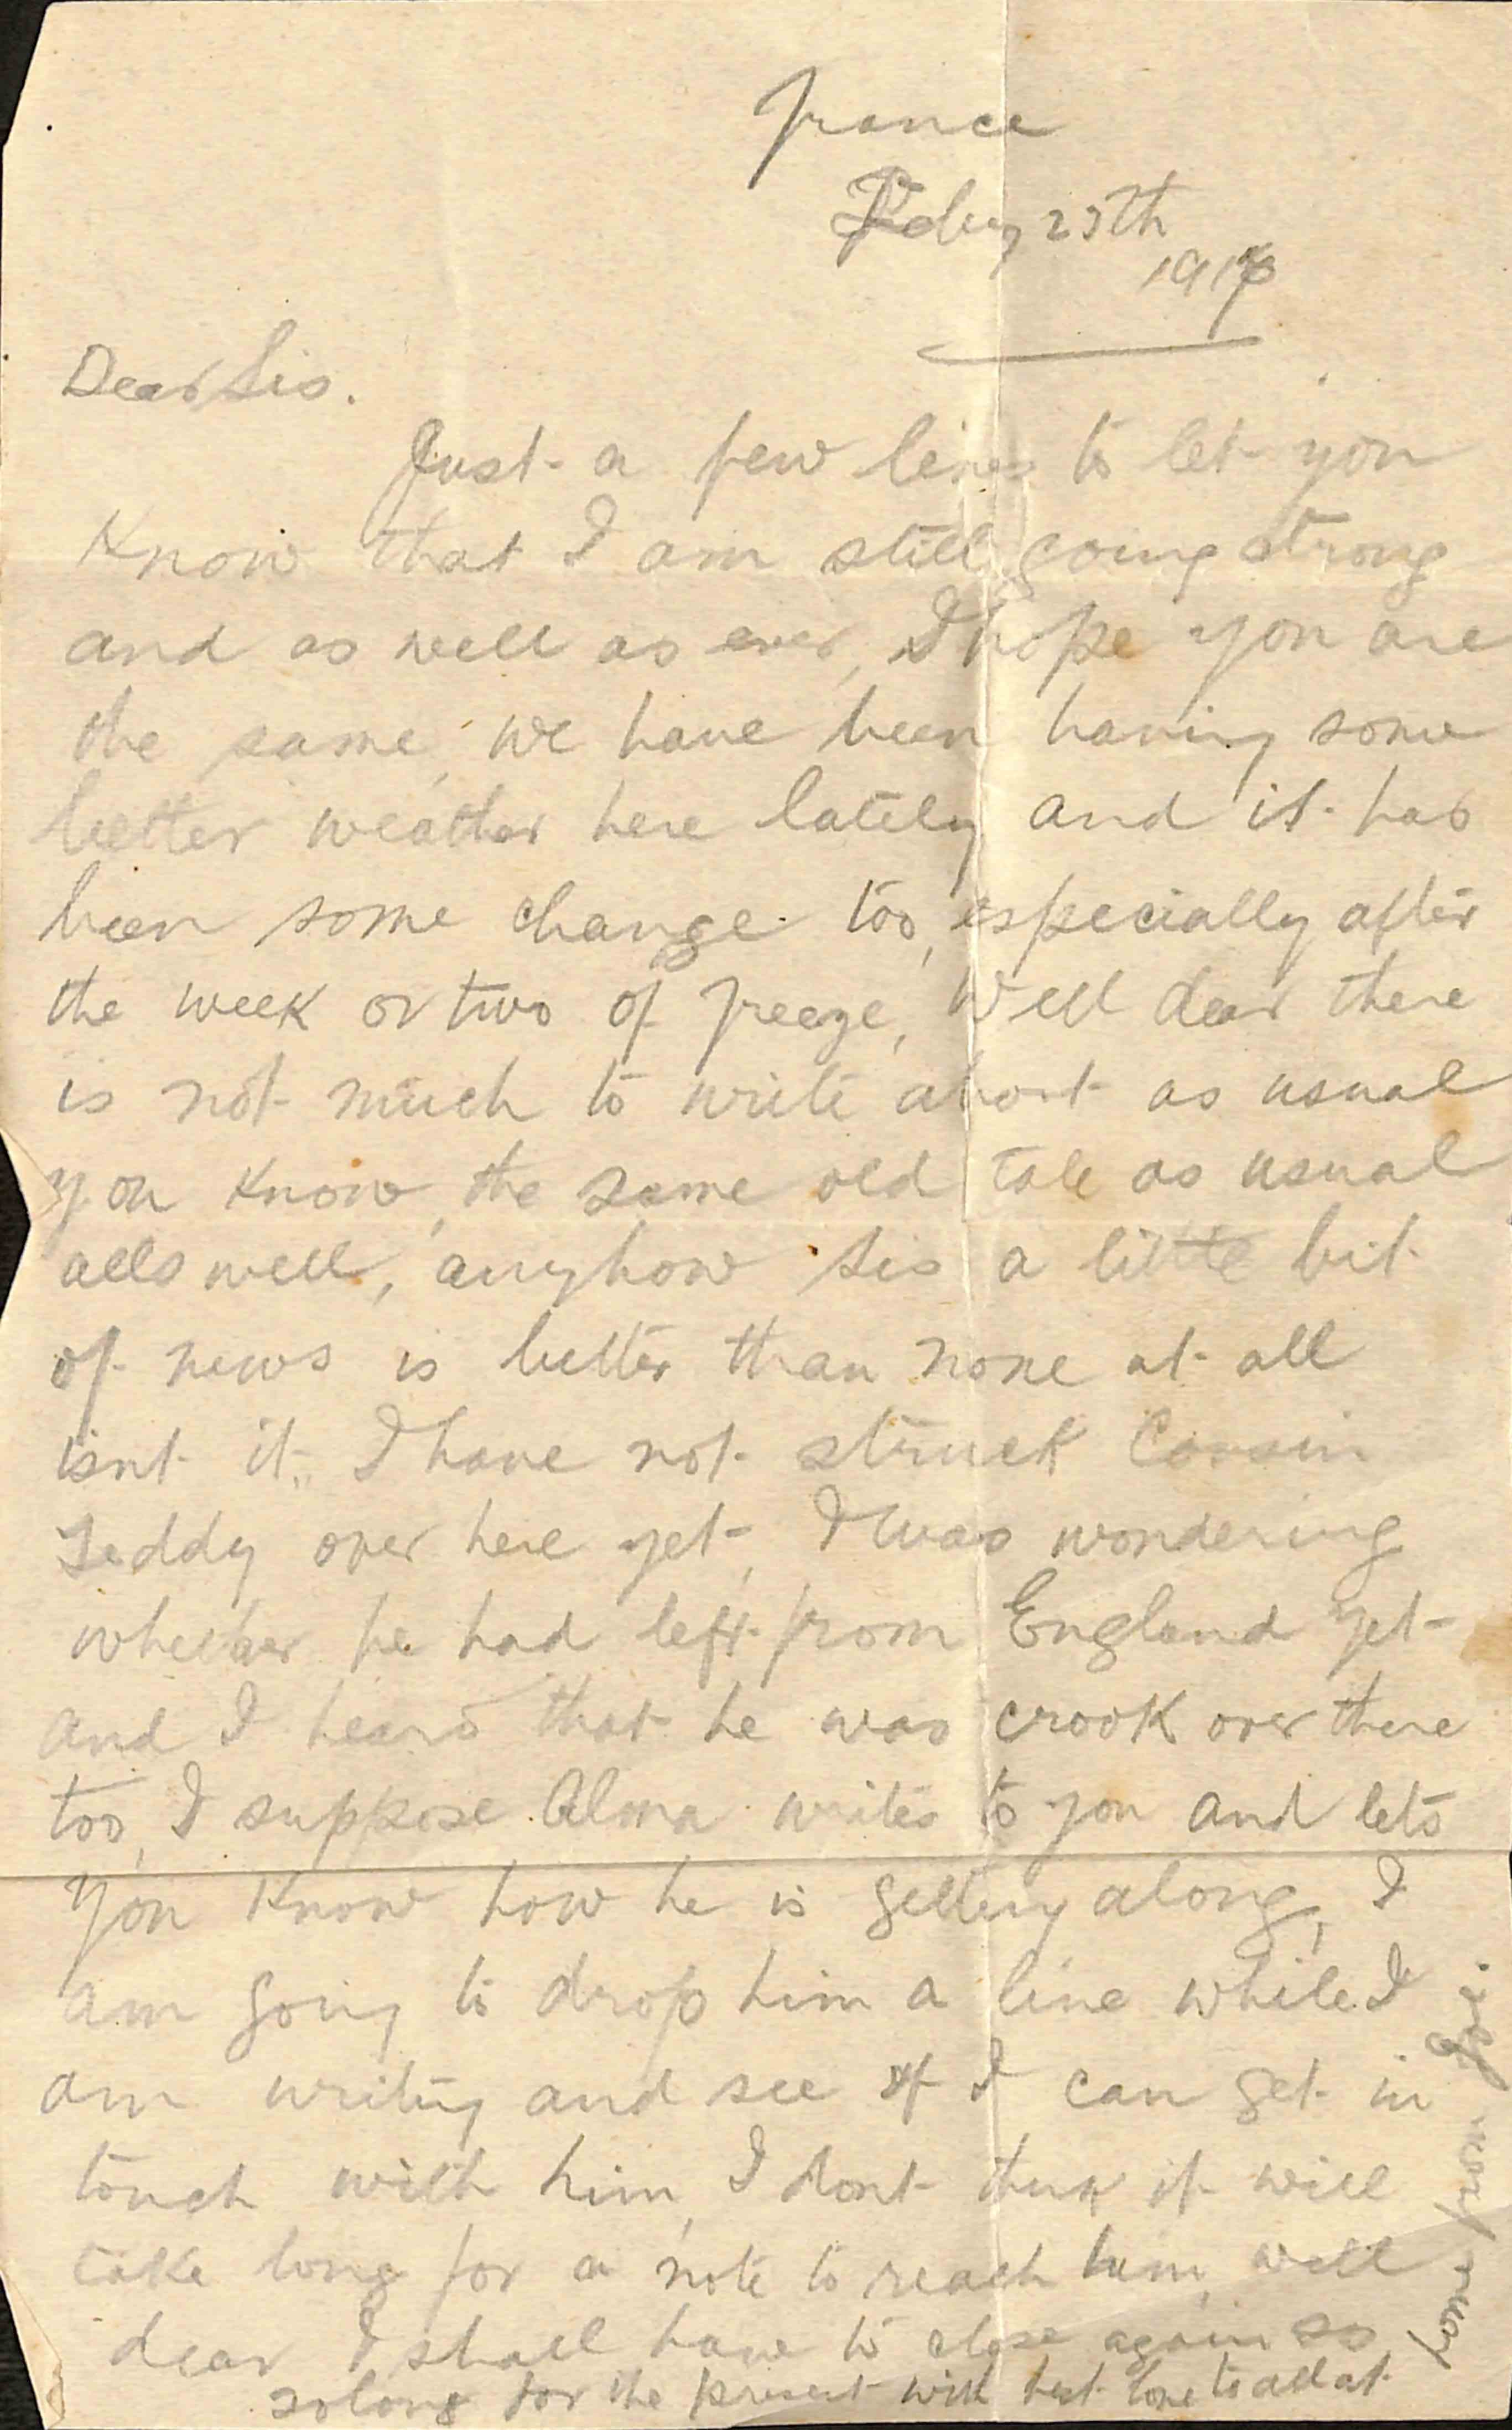 France
Feby 25th
1917
Dear Sis.
Just a few lines to let you
Know that I am still going strong
and as well as ever, I hope you are
the same, we have been having some
better weather here lately and it has
been some change too, especially after
the week or two of freeze, Well dear there
is not much to write about as usual
you know, the same old tale as usual
alls well, anyhow Sis a little bit
of news is better than none at all
isnt it. I have not struck Cousin
Teddy over here yet, I was wondering
whether he had left from England yet
and I heard that he was crook over there
too, I suppose Alma writes to you and lets
you know how he is getting along, I
am going to drop him a line while I
am writing and see if I can get in
touch with him, I dont think it will
take long for a note to reach him, well
dear I shall have to close again so
solong for the present with best love to all at
home from